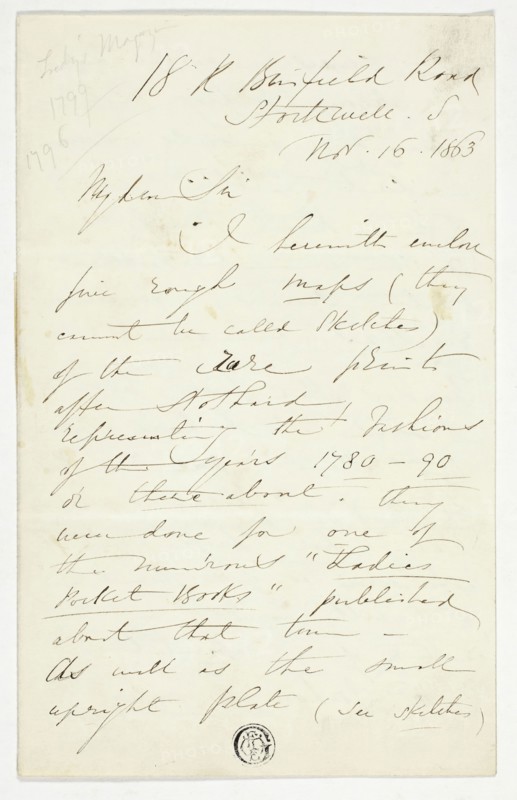 Lady's Mag
1799
1796
18 Binfield Road
Stockwell. S
Nov. 16. 1863
My dear Sir
I herewith enclose
five rough maps (they
cannot be called Sketches)
of the rare prints
after Stothard,
representing the Fashions
of the years 1780 - 90
or there about. they
were done for one of
the numerous "Ladies
Pocket Books" published
about that time -
As well as the small
upright plate (see sketches)